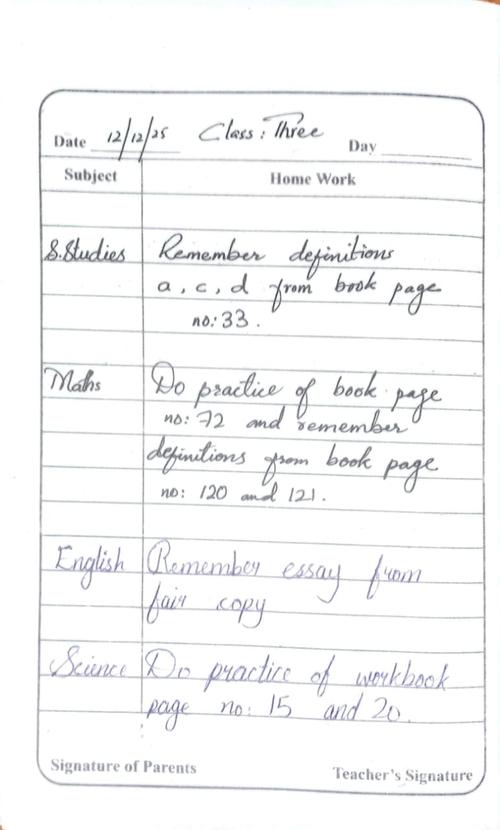 Date 12/12/25 Class : Three Day
Subject Home Work
S.Studies Remember definitions
a, c, d from book page
no: 33 .
Maths Do practice of book page
no: 72 and remember
definitions from book page
no: 120 and 121.
English Remember essay from
fair copy
Science Do practice of workbook
page no: 15 and 20.
Signature of Parents Teacher's Signature